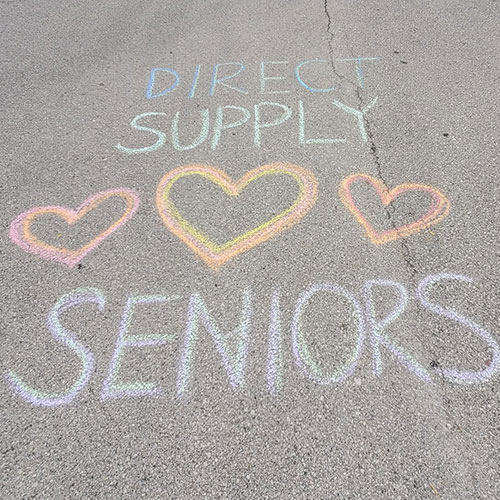 DIRECT
SUPPLY
SENIORS